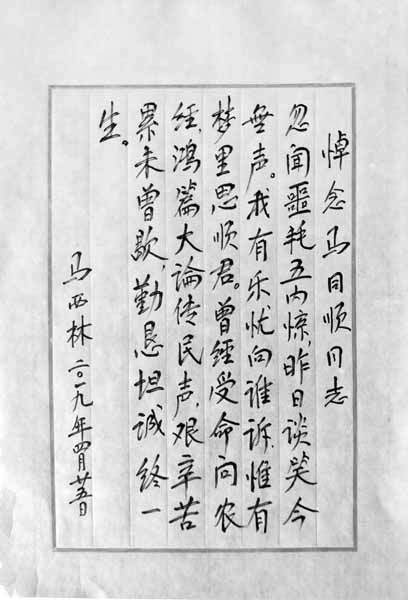 悼念马同顺同志
忽闻噩耗五内惊,昨日谈笑今
無声。我有乐忧向谁诉,惟有
梦里思顺君。曾经受命向农
经,鸿篇大论传民声,艰辛苦
累未曾歇,勤恳坦诚终一
生。
马西林二〇一九年四月廿五日